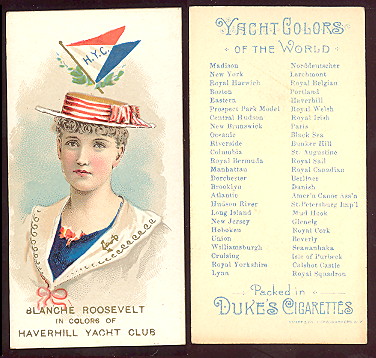 H.Y.C.
BLANCHE ROOSEVELT
IN COLORS OF
HAVERHILL YACHT CLUB
YACHT COLORS
OF THE WORLD
Madison
New York
Royal Harwich
Boston
Eastern
Prospect Park Model
Central Hudson
New Brunswick
Oceanic
Riverside
Columbia
Royal Bermuda
Manhattan
Dorchester
Brooklyn
Atlantic
Hudson River
Long Island
New Jersey
Hoboken
Union
Williamsburgh
Cruising
Royal Yorkshire
Lynn
Norddeutscher
Larchmont
Royal Belgian
Portland
Haverhill
Royal Welsh
Royal Irish
Paris
Black Sea
Bunker Hill
St. Augustine
Royal Sail
Royal Canadian
Berliner
Danish
Amer'n Canoe Ass'n
St. Petersburg Imp'l
Mud Hook
Glenelg
Royal Cork
Beverly
Seawanhaka
Isle of Purbeck
Calshot Castle
Royal Squadron
Packed in
DUKE'S CIGARETTES